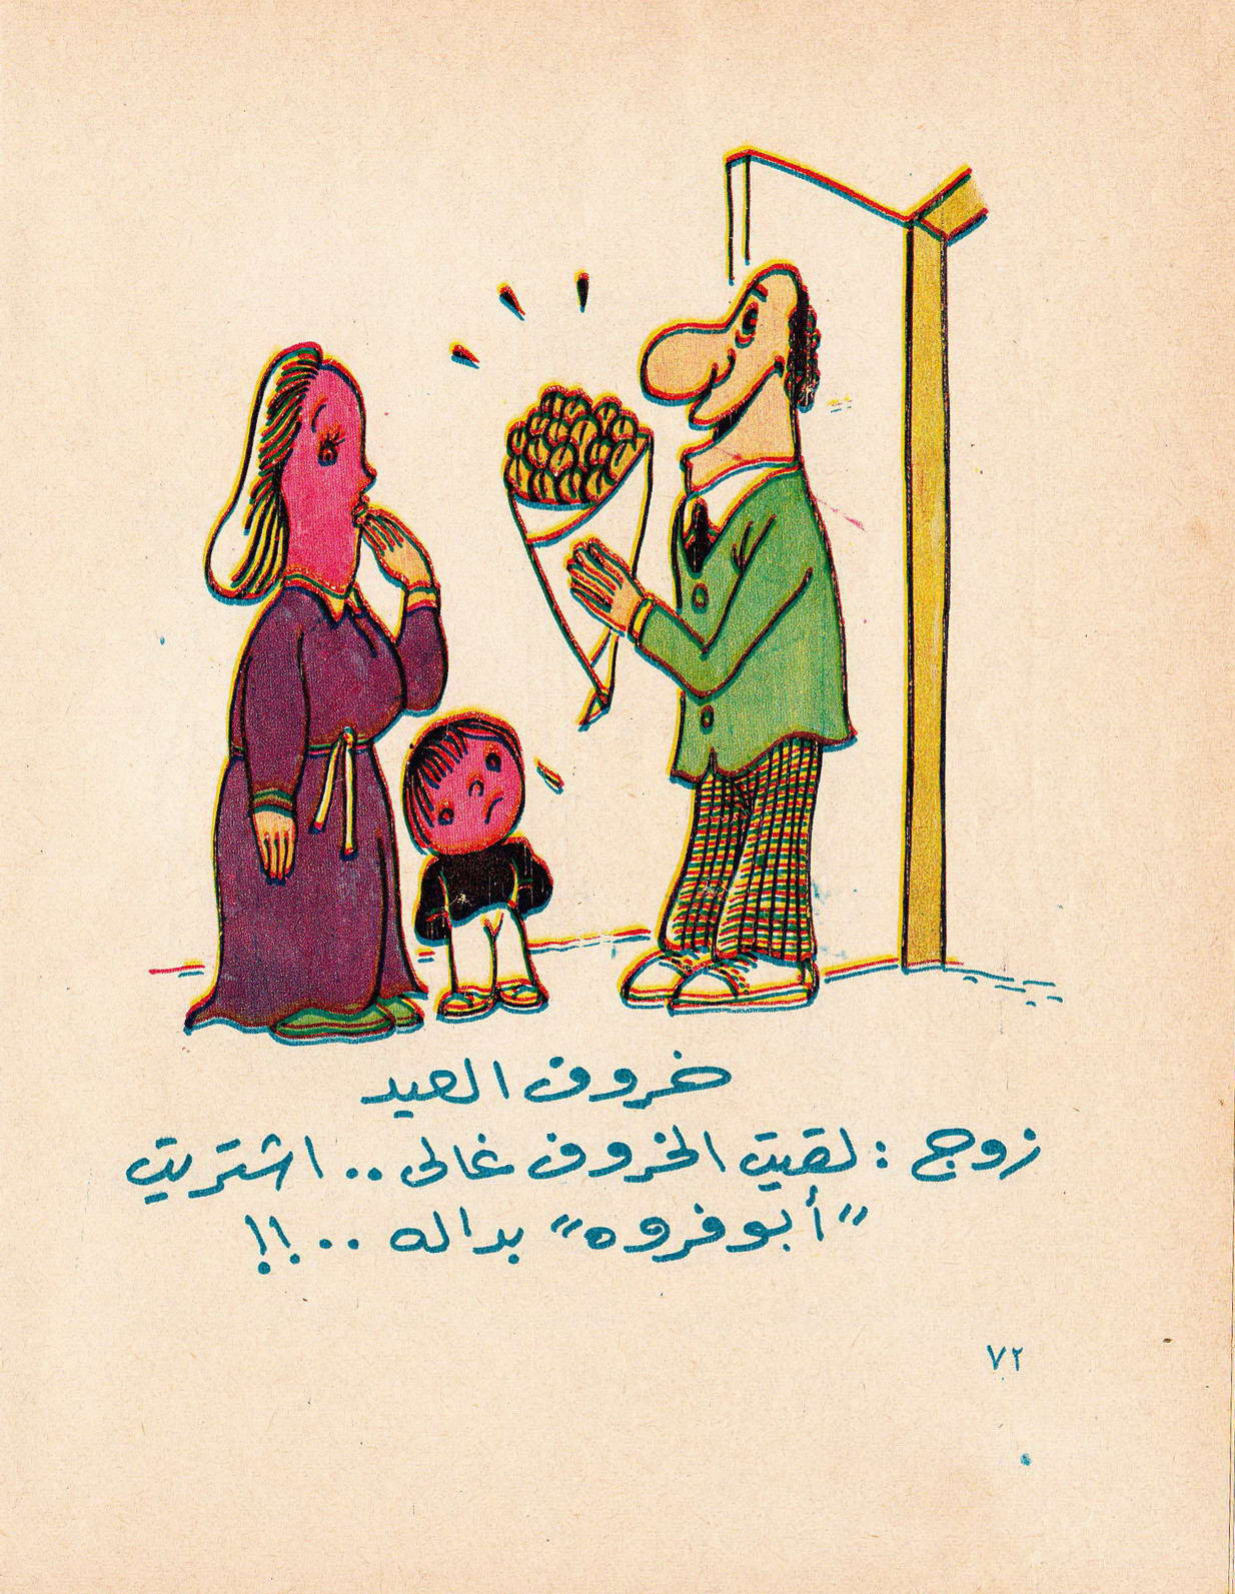 خروف العيد
زوج : لقيت الخروف غالى .. اشتريت
"أبو فروه" بداله .. !!
٧٢